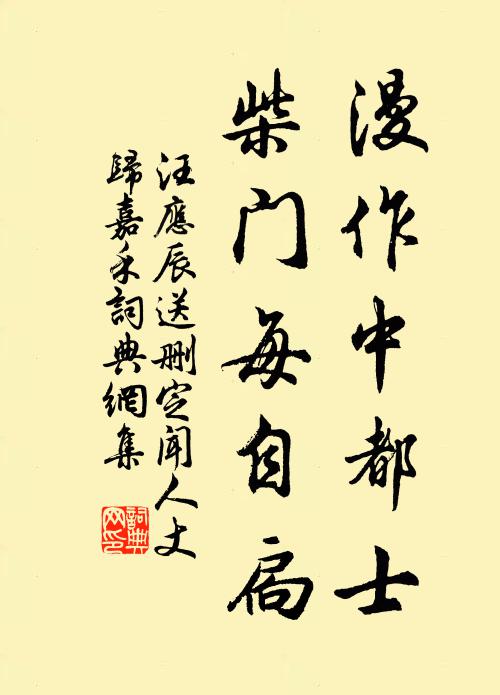 漫作中都士
柴門每自扃
汪應辰送删定聞人丈
歸嘉禾詞典網集
詞典
网印